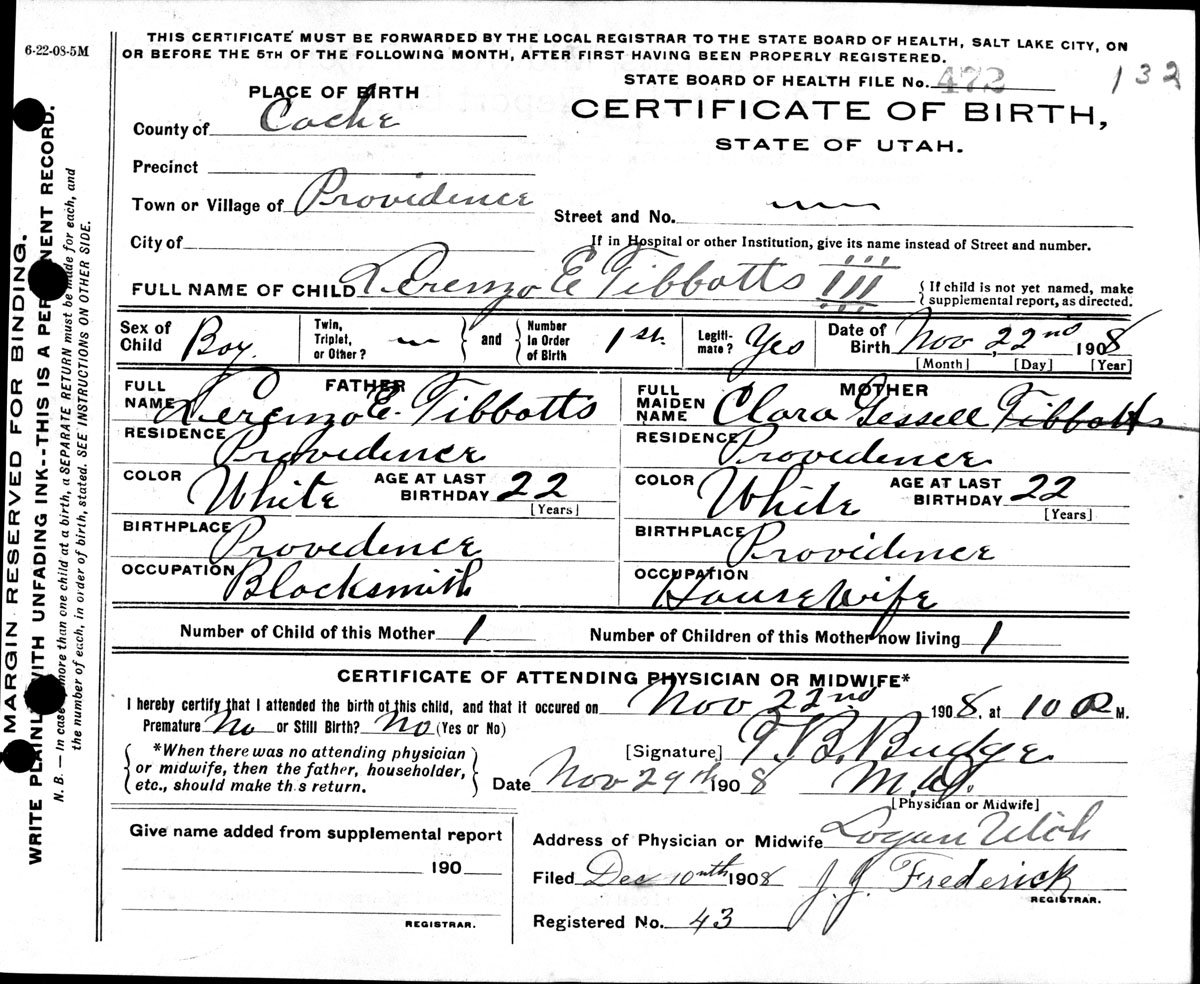 6-22-08-5M
THIS CERTIFICATE MUST BE FORWARDED BY THE LOCAL REGISTRAR TO THE STATE BOARD OF HEALTH, SALT LAKE CITY, ON
OR BEFORE THE 5TH OF THE FOLLOWING MONTH, AFTER FIRST HAVING BEEN PROPERLY REGISTERED.
STATE BOARD OF HEALTH FILE No. 472 132
PLACE OF BIRTH
CERTIFICATE OF BIRTH,
STATE OF UTAH.
County of Cache
Precinct
Town or Village of Providence
Street and No.
City of
If in Hospital or other Institution, give its name instead of Street and number.
FULL NAME OF CHILD Lerenzo E Tibbotts III
{ If child is not yet named, make
supplemental report, as directed.
Sex of Child Boy
Twin, Triplet, or Other?
and
Number In Order of Birth 1st.
Legiti-mate? Yes
Date of Birth Nov, 22nd 1908
[Month] [Day] [Year]
FATHER
FULL NAME Lerenzo E. Tibbotts
RESIDENCE Providence
COLOR White
AGE AT LAST BIRTHDAY 22
[Years]
BIRTHPLACE Providence
OCCUPATION Blacksmith
MOTHER
FULL MAIDEN NAME Clara Lessell Tibbotts
RESIDENCE Providence
COLOR White
AGE AT LAST BIRTHDAY 22
[Years]
BIRTHPLACE Providence
OCCUPATION HouseWife
Number of Child of this Mother 1
Number of Children of this Mother now living 1
CERTIFICATE OF ATTENDING PHYSICIAN OR MIDWIFE*
I hereby certify that I attended the birth of this child, and that it occured on Nov 22nd 1908. at 10 P M.
Premature No or Still Birth? No (Yes or No)
*When there was no attending physician
or midwife, then the father, householder,
etc., should make this return.
[Signature] T. B. Budge
Date Nov 29th 1908 M.D.
[Physician or Midwife]
Give name added from supplemental report
190
REGISTRAR.
Address of Physician or Midwife Logan Utah
Filed Dec 10nth 1908 J. J. Frederick
REGISTRAR.
Registered No. 43
MARGIN RESERVED FOR BINDING.
WRITE PLAINLY WITH UNFADING INK--THIS IS A PERMANENT RECORD.
N. B. — In case more than one child at a birth, a SEPARATE RETURN must be made for each, and
the number of each, in order of birth, stated. SEE INSTRUCTIONS ON OTHER SIDE.